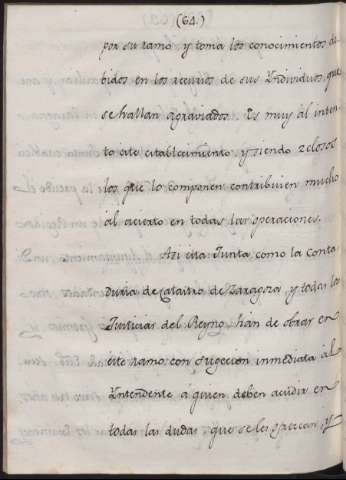 (64.)
por su ramo, y toma los conocimientos de-
bidos en los recursos de sus Individuos, que
se hallan agraviados. Es muy al inten-
to este establecimiento, y siendo zelosos
los que lo componen contribuien mucho
al acierto en todas las operaciones.
Asi esta Junta, como la Conta
duria de Catastro de Zaragoza, y todas las
Justicias del Reyno, han de obrar en
este ramo con sugeccion inmediata al
Intendente á quien deben acudir en
todas las dudas, que se les ofrecen, y